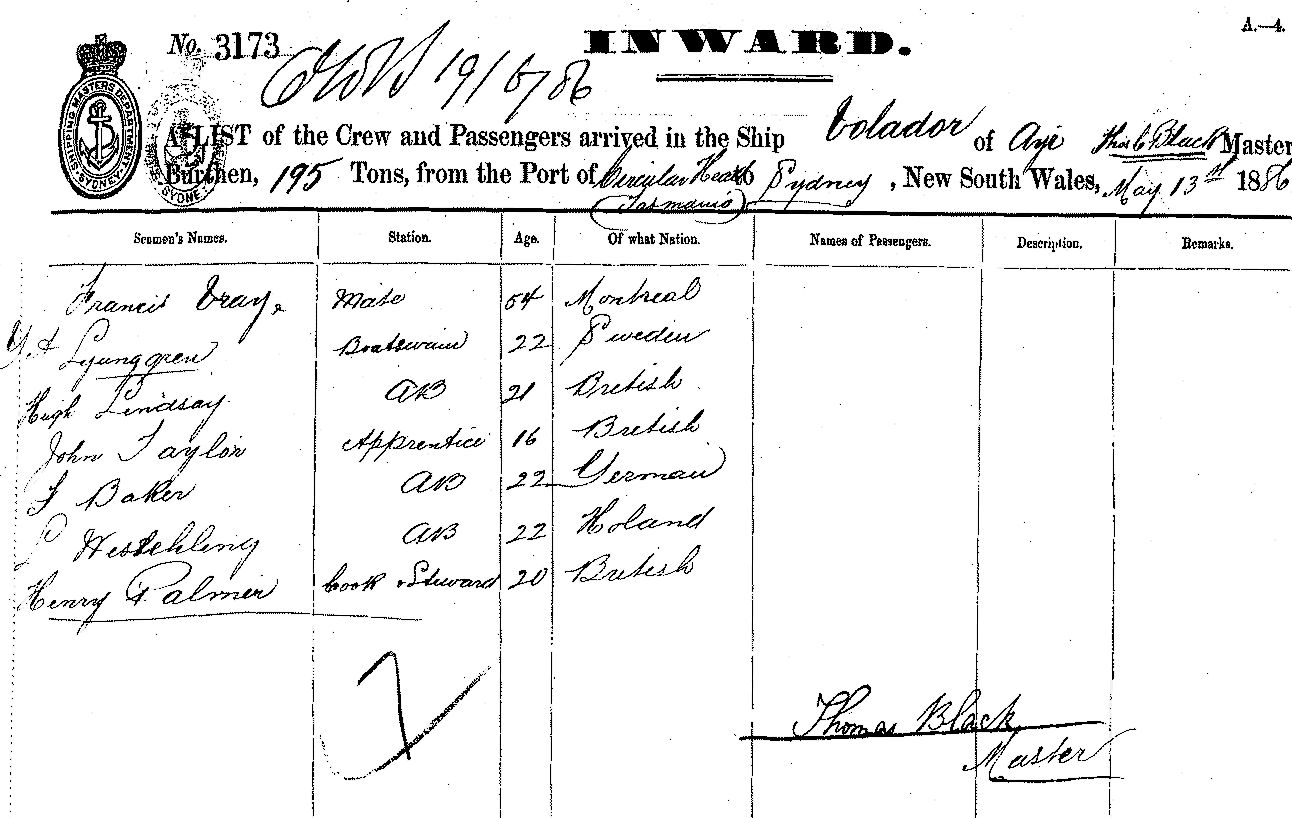 A.—4.
No. 3173
INWARD.
19/5/86
SHIPPING MASTERS DEPARTMENT SYDNEY
SYDNEY
A LIST of the Crew and Passengers arrived in the Ship Volador of Thos C Black Master
Burthen, 195 Tons, from the Port of Circular Head to Sydney, New South Wales, May 13th 1886
Tasmania
Seamen's Names. Station. Age. Of what Nation. Names of Passengers. Description. Remarks.
Francis Mate 54 Montreal
Lyunggren Boatswain 22 Sweden
Hugh Lindsay AB 21 British
John Taylor Apprentice 16 British
F Baker AB 22 German
AB 22 Holand
Henry Palmer Cook & Steward 20 British
7
Thomas Black
Master